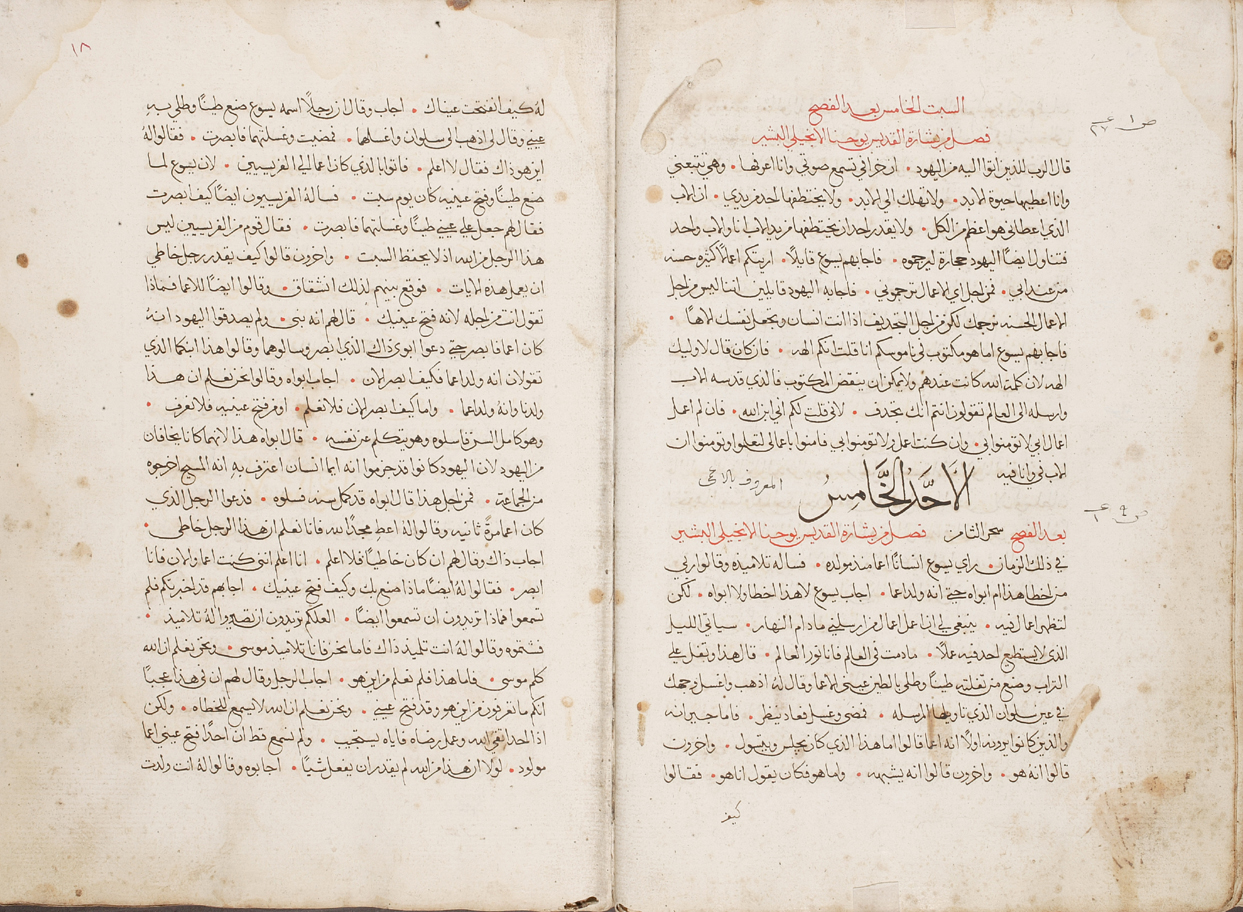 السبت الخامس بعد الفصح
فصل من بشارة القديس يوحنا الانجيلي البشير
قال الرب للذين اتوا اليه من اليهود • ان خرافي تسمع صوتي وانا اعرفها • وهي تتبعني
وانا اعطيها حيوة الابد • ولا تهلك الى الابد • ولا يختطفها احد من يدي • ان الاب
الذي اعطاني هو اعظم من الكل • ولا يقدر احد ان يختطفها من يد الاب انا والاب واحد
فتناول ايضًا اليهود حجارة ليرجموه • فاجابهم يسوع قايلًا • اريتكم اعمالًا كثيرة حسنه
من عند ابي • فمن اجل اي الاعمال ترجموني • فاجابه اليهود قايلين اننا ليس من اجل
الاعمال الحسنه نرجمك لكن من اجل التجديف اذ انت انسان وتجعل نفسك الاهًا •
فاجابهم يسوع اما هو مكتوب في ناموسكم انا قلت انكم الهه • فان كان قال لاوليك
الهه لان كلمة الله كانت عندهم ولا يمكن ان ينقض المكتوب فالذي قدسه الاب
وارسله الى العالم تقولون انتم انك تجدف • لاني قلت لكم اني ابن الله • فان لم اعمل
اعمال ابي لا تومنوا بي • وان كنت اعمل ولا تومنوا بي فامنوا باعمالي لتعلموا وتومنوا ان
الاب في وانا فيه
الاحد الخامس
المعروف بالاعمى
بعد الفصح سحر الثامن فصل من بشارة القديس يوحنا الانجيلي البشير
في ذلك الزمان • راي يسوع انسانًا اعما منذ مولده • فساله تلاميذه وقالوا ربي
من اخطا هذا ام ابواه حتى انه ولد اعما • اجاب يسوع لا هذا اخطا ولا ابواه • لكن
لتظهر اعمال الله فيه • ينبغي لي ان اعمل اعمال من ارسلني ما دام النهار • سياتي الليل
الذي لا يستطيع احد فيه عملًا • ما دمت في العالم فانا نور العالم • قال هذا وتفل على
التراب وصنع من تفلته طينًا وطلى بالطين عيني الاعما وقال له اذهب واغسل وجهك
في عين سلوان الذي تاويلها المرسله • فمضى وغسل فعاد ينظر • فاما جيرانه
والذين كانوا يرونه اولًا انه اعما قالوا اما هذا الذي كان يجلس ويتسول • واخرون
قالوا انه هو • واخرون قالوا انه يشبهه • واما هو فكان يقول انا هو • فقالوا
كيف
١٨
له كيف انفتحت عيناك • اجاب وقال ان رجلًا اسمه يسوع صنع طينًا وطلى به
عيني وقال لي اذهب الى سلوان واغسلها • فمضيت وغسلتهما فابصرت • فقالوا له
اين هو ذاك فقال لا اعلم • فاتوا بالذي كان اعما الى الفريسيين • لان يسوع لما
صنع طينًا وفتح عينيه كان يوم سبت • فساله الفريسيون ايضًا كيف ابصرت
فقال لهم جعل على عيني طينًا وغسلتهما فابصرت • فقال قوم من الفريسيين ليس
هذا الرجل من الله اذ لا يحفظ السبت • واخرون قالوا كيف يقدر رجل خاطي
ان يعمل هذه الايات • فوقع بينهم لذلك انشقاق • وقالوا ايضًا للاعما فماذا
تقول انت من اجله لانه فتح عينيك • قال لهم انه نبي • ولم يصدقوا اليهود انه
كان اعما فابصر حتى دعوا ابوي ذاك الذي ابصر وسالوهما وقالوا هذا ابنكما الذي
تقولان انه ولد اعما فكيف ابصر الان • اجاب ابواه وقالوا نحن نعلم ان هذا
ولدنا وانه ولد اعما • واما كيف ابصر الان فلا نعلم • او من فتح عينيه فلا نعرف •
وهو كامل السن فاسلوه وهو يتكلم عن نفسه • قال ابواه هذا لانهما كانا يخافان
من اليهود لان اليهود كانوا قد جزموا انه ايما انسان اعترف به انه المسيح اخرجوه
من الجماعة • فمن اجل هذا قال ابواه قد كمل سنه فسلوه • فدعوا الرجل الذي
كان اعما مرةً ثانيه وقالوا له اعط مجدًا لله فانا نعلم ان هذا الرجل خاطي •
اجاب ذاك وقال لهم ان كان خاطيًا فلا اعلم • انا اعلم انني كنت اعما والان فانا
ابصر • فقالوا له ايضًا ماذا صنع بك وكيف فتح عينيك • اجابهم قد اخبرتكم فلم
تسمعوا فماذا تريدون ان تسمعوا ايضًا • العلكم تريدون ان تصيروا له تلاميذ •
فشتموه وقالوا له انت تلميذ ذاك فاما نحن فانا تلاميذ موسى • ونحن نعلم ان الله
كلم موسى • فاما هذا فلم نعلم من اين هو • اجاب الرجل وقال لهم ان في هذا عجبًا
انكم ما تعرفون من اين هو وقد فتح عيني • ونحن نعلم ان الله لا يسمع للخطاه • ولكن
اذا احد اتقى الله وعمل رضاه فاياه يستجيب • ولم نسمع قط ان احدًا فتح عيني اعما
مولود • لولا ان هذا من الله لم يقدر ان يفعل شيًا • اجابوه وقالوا له انت ولدت